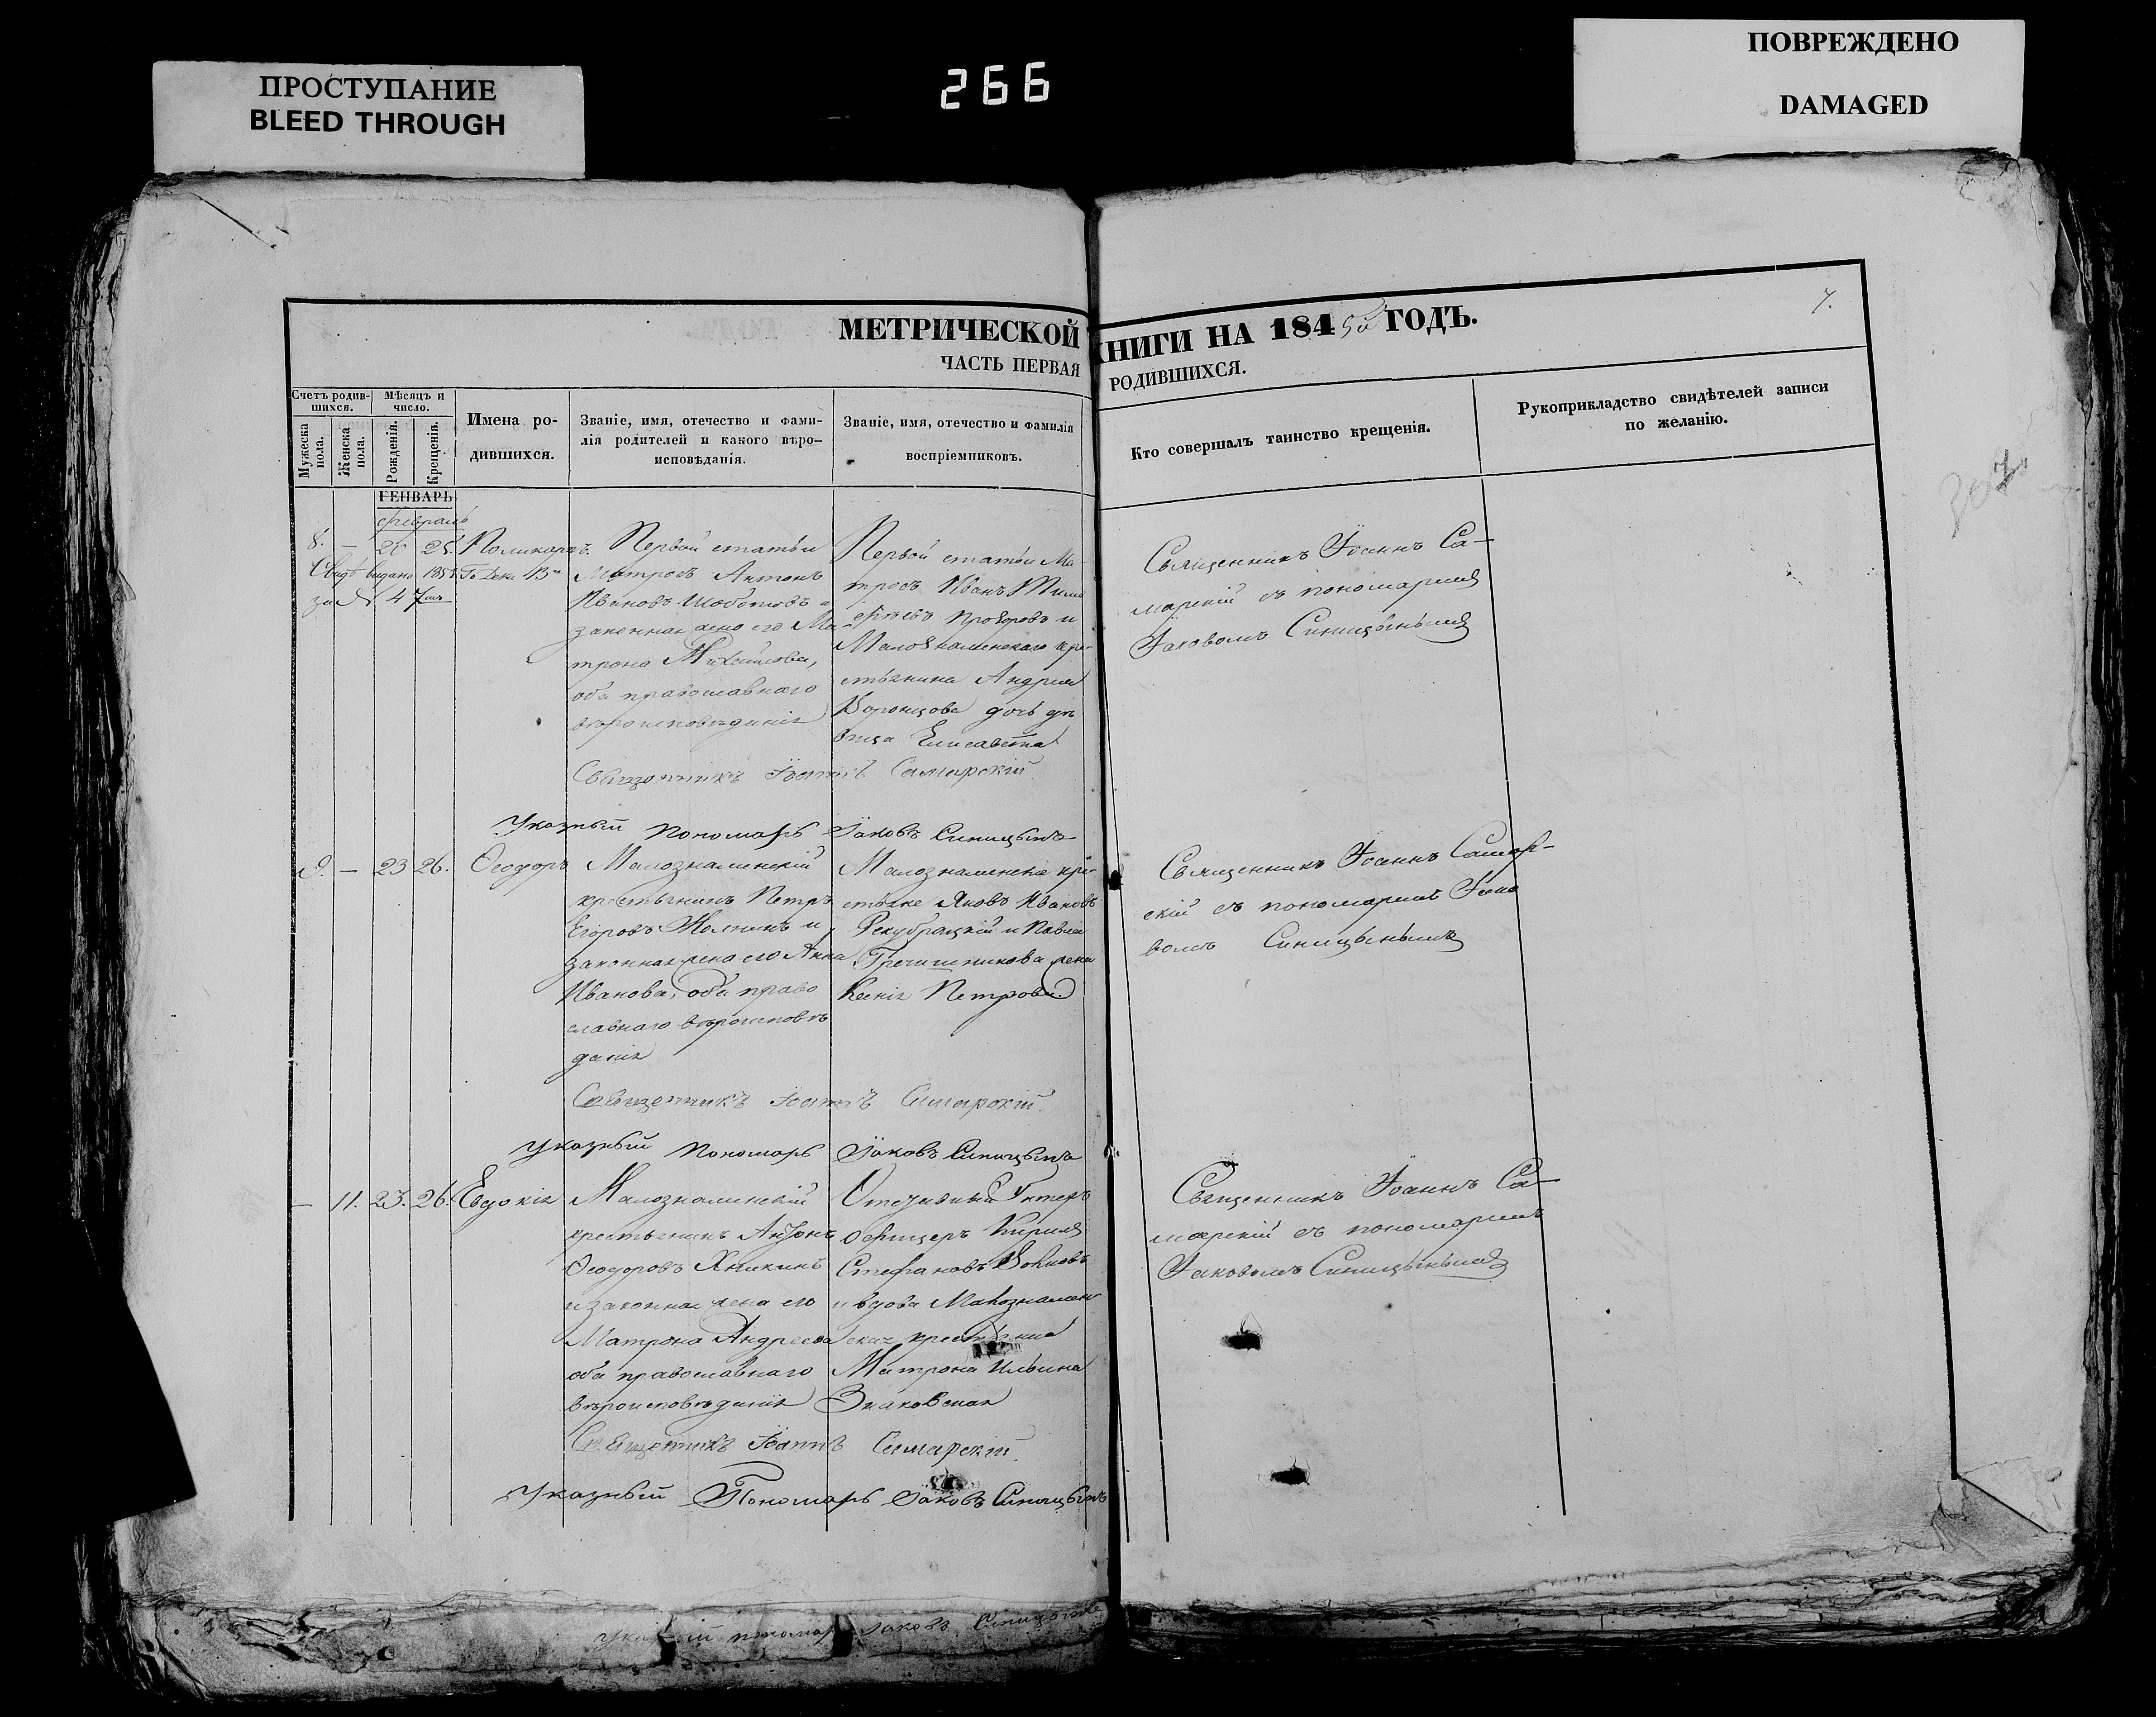 ПРОСТУПАНИЕ
BLEED THROUGH
266
ПОВРЕЖДЕНО
DAMAGED
МЕТРИЧЕСКОЙ КНИГИ НА 1845й ГОДЪ.
7.
ЧАСТЬ ПЕРВАЯ РОДИВШИХСЯ.
Счетъ родив-
шихся.
Мужеска
пола.
Женска
пола.
Мѣсяцъ и
число.
Рожденія.
Крещенія.
Имена ро-
дившихся.
Званіе, имя, отечество и фами-
лія родителей и какого вѣро-
исповѣданія.
Званіе, имя, отечество и фамилія
воспріемниковъ.
Кто совершалъ таинство крещенія.
Рукоприкладство свидѣтелей записи
по желанію.
ГЕНВАРЬ
февраль
8. — 20 25. Поликарпъ.
за № 47
Первой статьи
Матросъ Антонъ
Ивановъ
законная жена его Ма-
трона Михайлова,
оба православнаго
вѣроисповѣданія
Первой статьи Ма-
тросъ Иванъ
и
Малознаменскаго кре-
стьянина Андрея
Воронцова дочь дѣ
вица Елисавета
Священникъ Іоаннъ Са-
марскій съ пономаремъ
Іаковомъ Синицынымъ
Священникъ Іоаннъ Самарскій.
Указный пономарь Іаковъ Синицынъ
9. — 23 26. Ѳеодоръ
Малознаменскій
крестьянинъ Петръ
Егоровъ и
законная жена его Анна
Иванова, оба право
славнаго вѣроисповѣ
данія
Малознаменскіе кре-
стьяне Яковъ Ивановъ
и Павла
Гречишникова жена
Ксенія Петрова
Священникъ Іоаннъ Самар-
скій съ пономаремъ Іако
вомъ Синицынымъ
Священникъ Іоаннъ Самарскій.
Указный пономарь Іаковъ Синицынъ
— 11. 23. 26. Евдокія
Малознаменскій
крестьянинъ Антонъ
Ѳеодоровъ
и законная жена его
Матрона Андреева
оба православнаго
вѣроисповѣданія
Отставный Унтеръ
офицеръ Кирилъ
Стефановъ
и вдова Малознамен
ская крестьянка
Матрона Ильина
Знаковская
Священникъ Іоаннъ Са-
марскій съ пономаремъ
Іаковомъ Синицынымъ
Священникъ Іоаннъ Самарскій.
Указный Пономарь Іаковъ Синицынъ
Указный пономарь Іаковъ Синицынъ